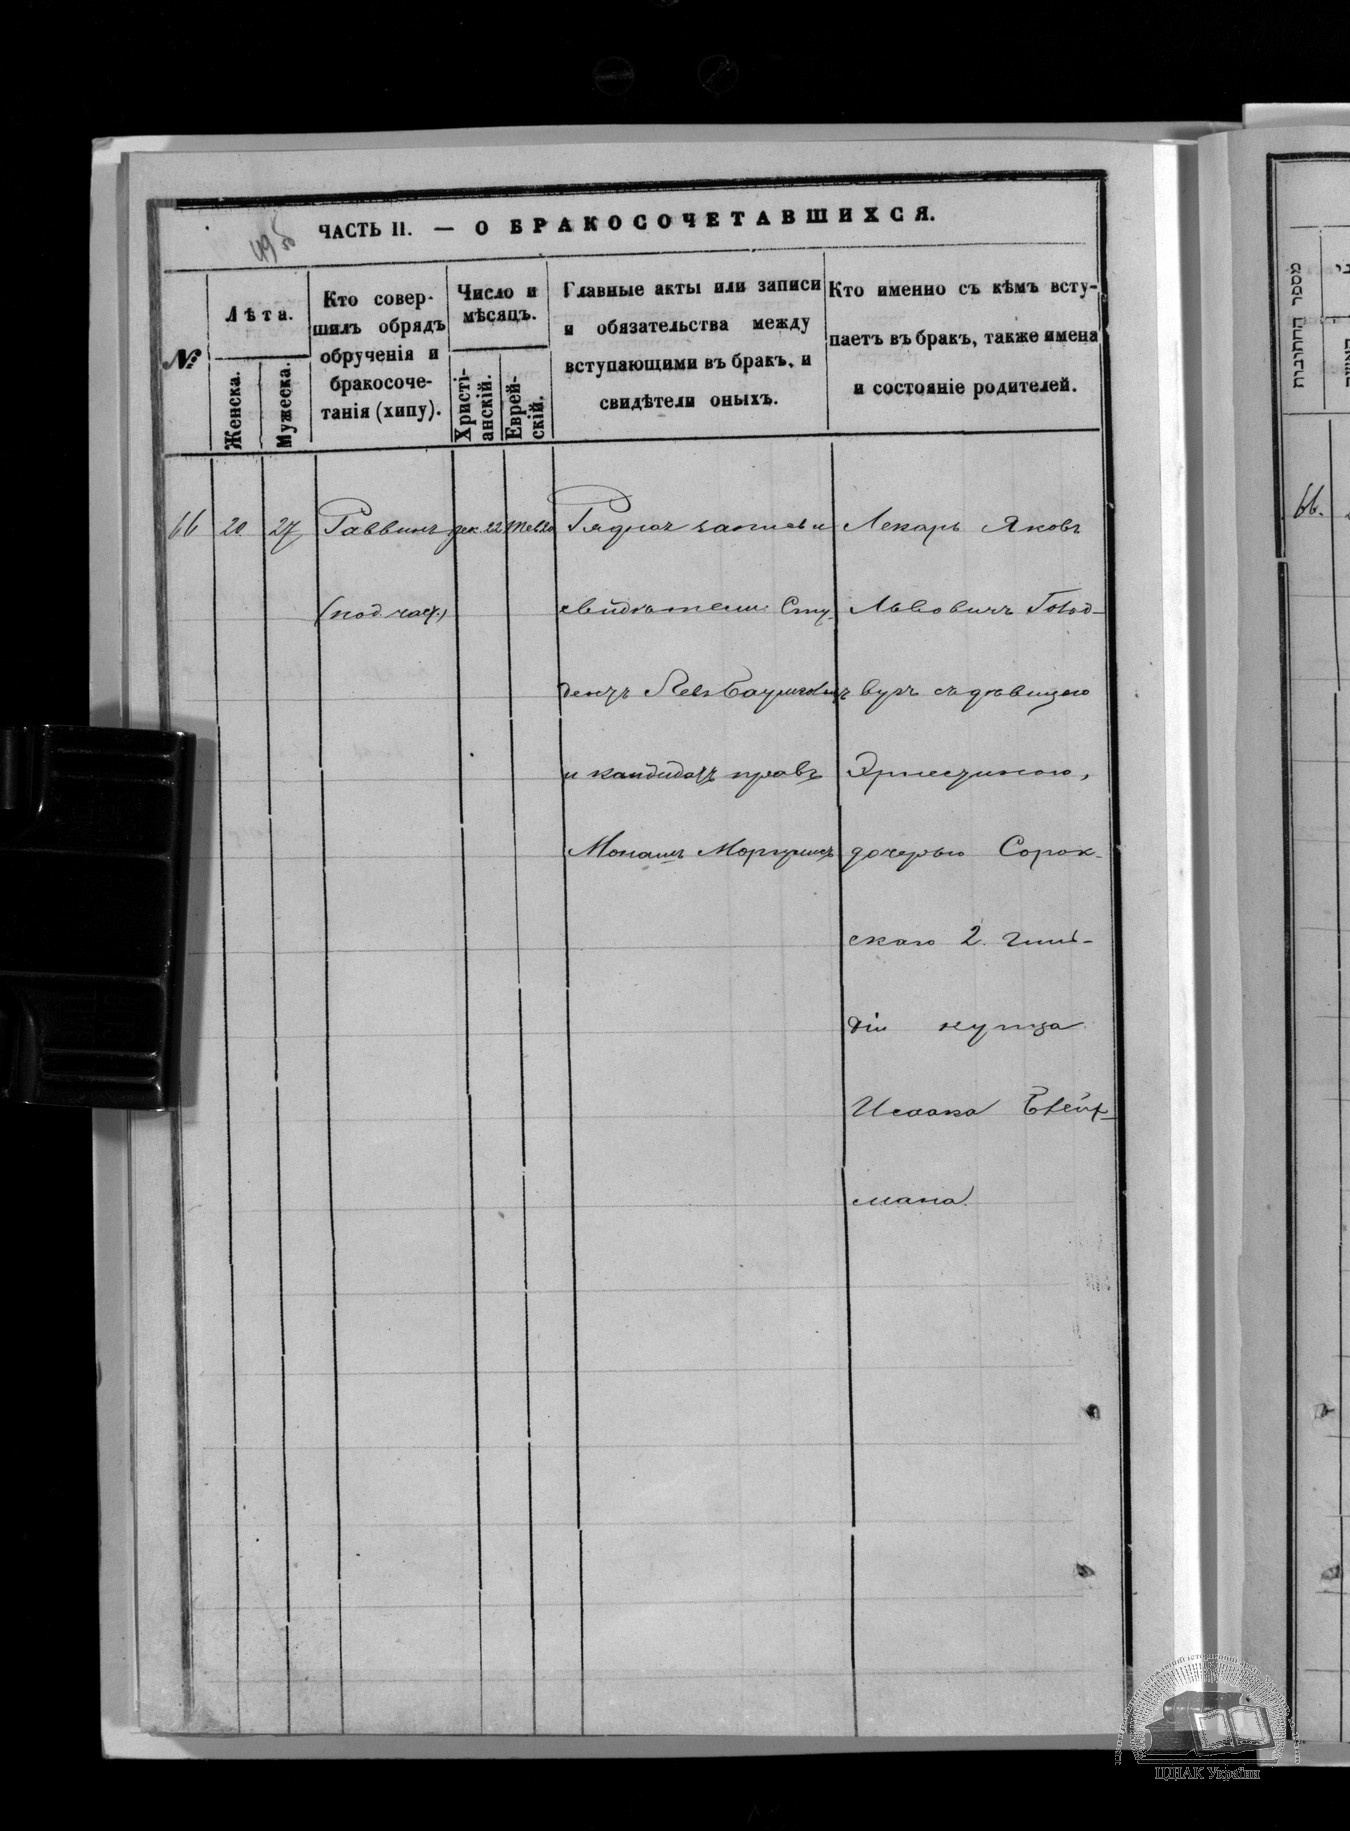 ЧАСТЬ II. — О БРАКОСОЧЕТАВШИХСЯ.
№
Лѣта.
Женска.
Мужеска.
Кто совер-
шилъ обрядъ
обрученія и
бракосоче-
танія (хипу).
Число и
мѣсяцъ.
Христі-
анскій.
Еврей-
скій.
Главные акты или записи
и обязательства между
вступающими въ бракъ, и
свидѣтели оныхъ.
Кто именно съ кѣмъ всту-
паетъ въ бракъ, также имена
и состояніе родителей.
66
20
27
Раввинъ
Дек. 22
Тев 20
Рядная запись и
свидѣтели: Сту-
дентъ Левъ
и кандидатъ правъ
Лекарь Яковъ
Львовичъ
съ дѣвицею
Эрнестиною,
дочерью Сорок-
скаго 2. гиль-
діи купца
Исаака
мана.
מספר החתונות
66.
ЦДІАК України